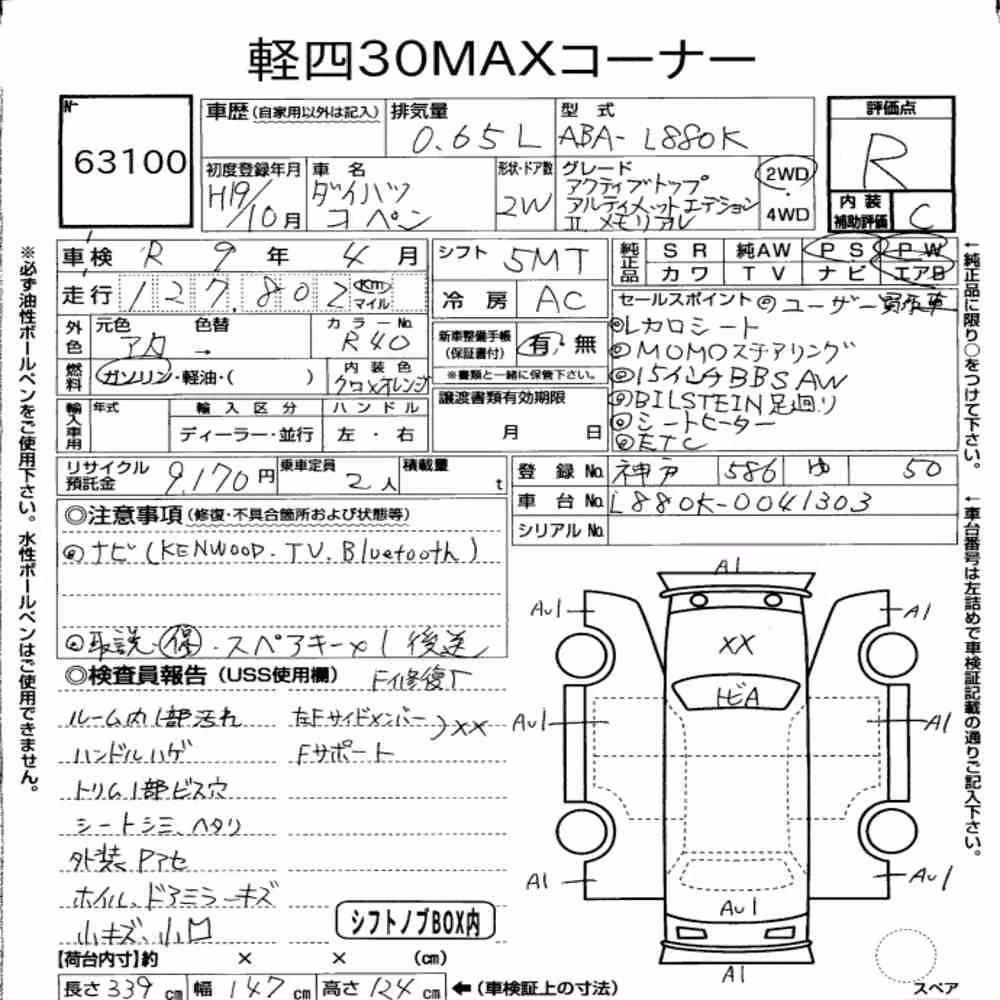 軽四30MAXコーナー
№ 63100
車歴(自家用以外は記入)
排気量 0.65L
型式 ABA-L880K
評価点 R
初度登録年月 H19/10月
車名 ダイハツ コペン
形状・ドア数 2W
グレード アクティブトップ
アルティメットエディション
II メモリアル
2WD
・
4WD
内装補助評価 C
車検 R 9年 4月
シフト 5MT
純正品 SR 純AW PS PW
カワ TV ナビ エアB
走行 127,802 Km マイル
冷房 AC
セールスポイント ◎ユーザー買取車
◎レカロシート
◎MOMOステアリング
◎15インチBBSAW
◎BILSTEIN足廻り
◎シートヒーター
◎ETC
外色 元色 アカ 色替 →
カラーNo. R40
新車整備手帳(保証書付) 有・無
※書類と一緒に保管下さい。
燃料 ガソリン・軽油・( )
内装色 クロ×オレンジ
譲渡書類有効期限
月 日
輸入車用 年式 輸入区分 ハンドル
ディーラー・並行 左・右
リサイクル預託金 9,170円
乗車定員 2人
積載量 t
登録No. 神戸 586 ゆ 50
車台No. L880K-0041303
シリアルNo.
◎注意事項(修復・不具合箇所および状態等)
◎ナビ(KENWOOD.TV.Bluetooth)
◎取説・保・スペアキー×1後送
◎検査員報告(USS使用欄) F修復
ルーム内1部汚れ 左Fサイドメンバー
ハンドルハゲ Fサポート
)××
トリム1部ビス穴
シートシミ、ヘタリ
外装Pアセ
ホイル、ドアミラーキズ
小キズ、小凹
シフトノブBOX内
【荷台内寸】約 × × (cm)
長さ339cm 幅147cm 高さ124cm ←(車検証上の寸法)
A1
AU1 A1
XX
トビA
AU1 A1
A1 AU1
AU1
A1
スペア
※必ず油性ボールペンをご使用下さい。水性ボールペンはご使用できません。
←純正品に限り○をつけて下さい。
←車台番号は左詰めで車検証記載の通りご記入下さい。